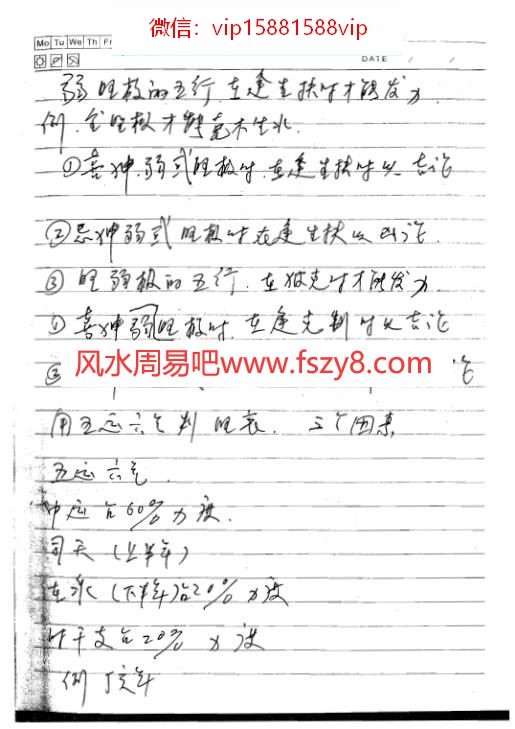 微信：vip15881588vip
Mo Tu We Th Fr
DATE
弱旺极的五行.在逢生扶时才能发力
例.金旺极才转克木生水.
①喜神.弱或旺极时.在逢生扶时以吉论
②忌神弱或旺极时在逢生扶以凶论.
③旺弱极的五行.在被克时才能发力.
①喜神弱旺极时.在逢克制时以吉论
风水周易吧www.fszy8.com
② 论
用五运六气判旺衰. 三个因素
五运六气.
中运占60%力度.
司天(上半年)
在泉(下半年)占20%力度
叶干支占20%力度
例丁亥年